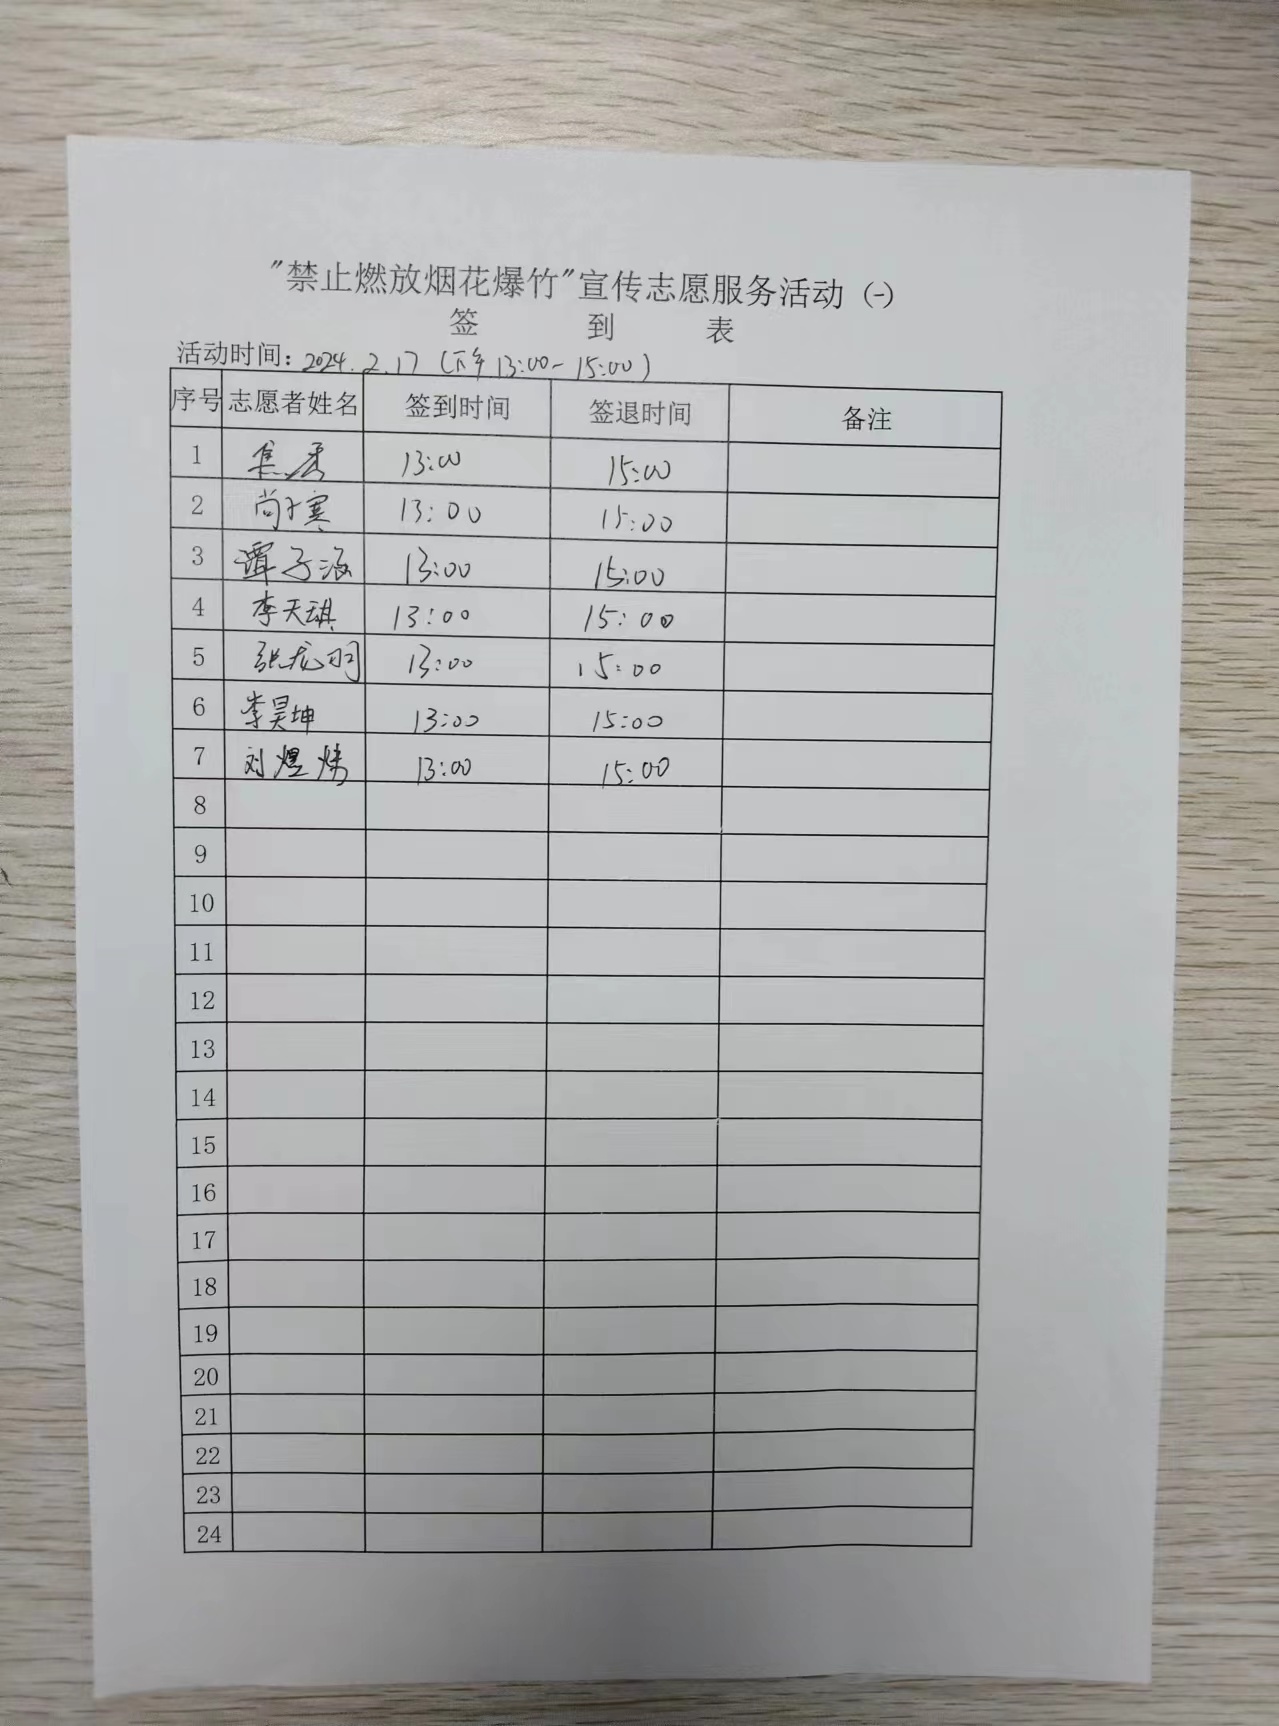 "禁止燃放烟花爆竹"宣传志愿服务活动 (一)
签 到 表
活动时间: 2024.2.17 (下午13:00-15:00)
序号 志愿者姓名 签到时间 签退时间 备注
1 13:00 15:00
2 尚寒 13:00 15:00
3 谭子涵 13:00 15:00
4 李天琪 13:00 15:00
5 张龙羽 13:00 15:00
6 李昊坤 13:00 15:00
7 刘煜炜 13:00 15:00
8
9
10
11
12
13
14
15
16
17
18
19
20
21
22
23
24